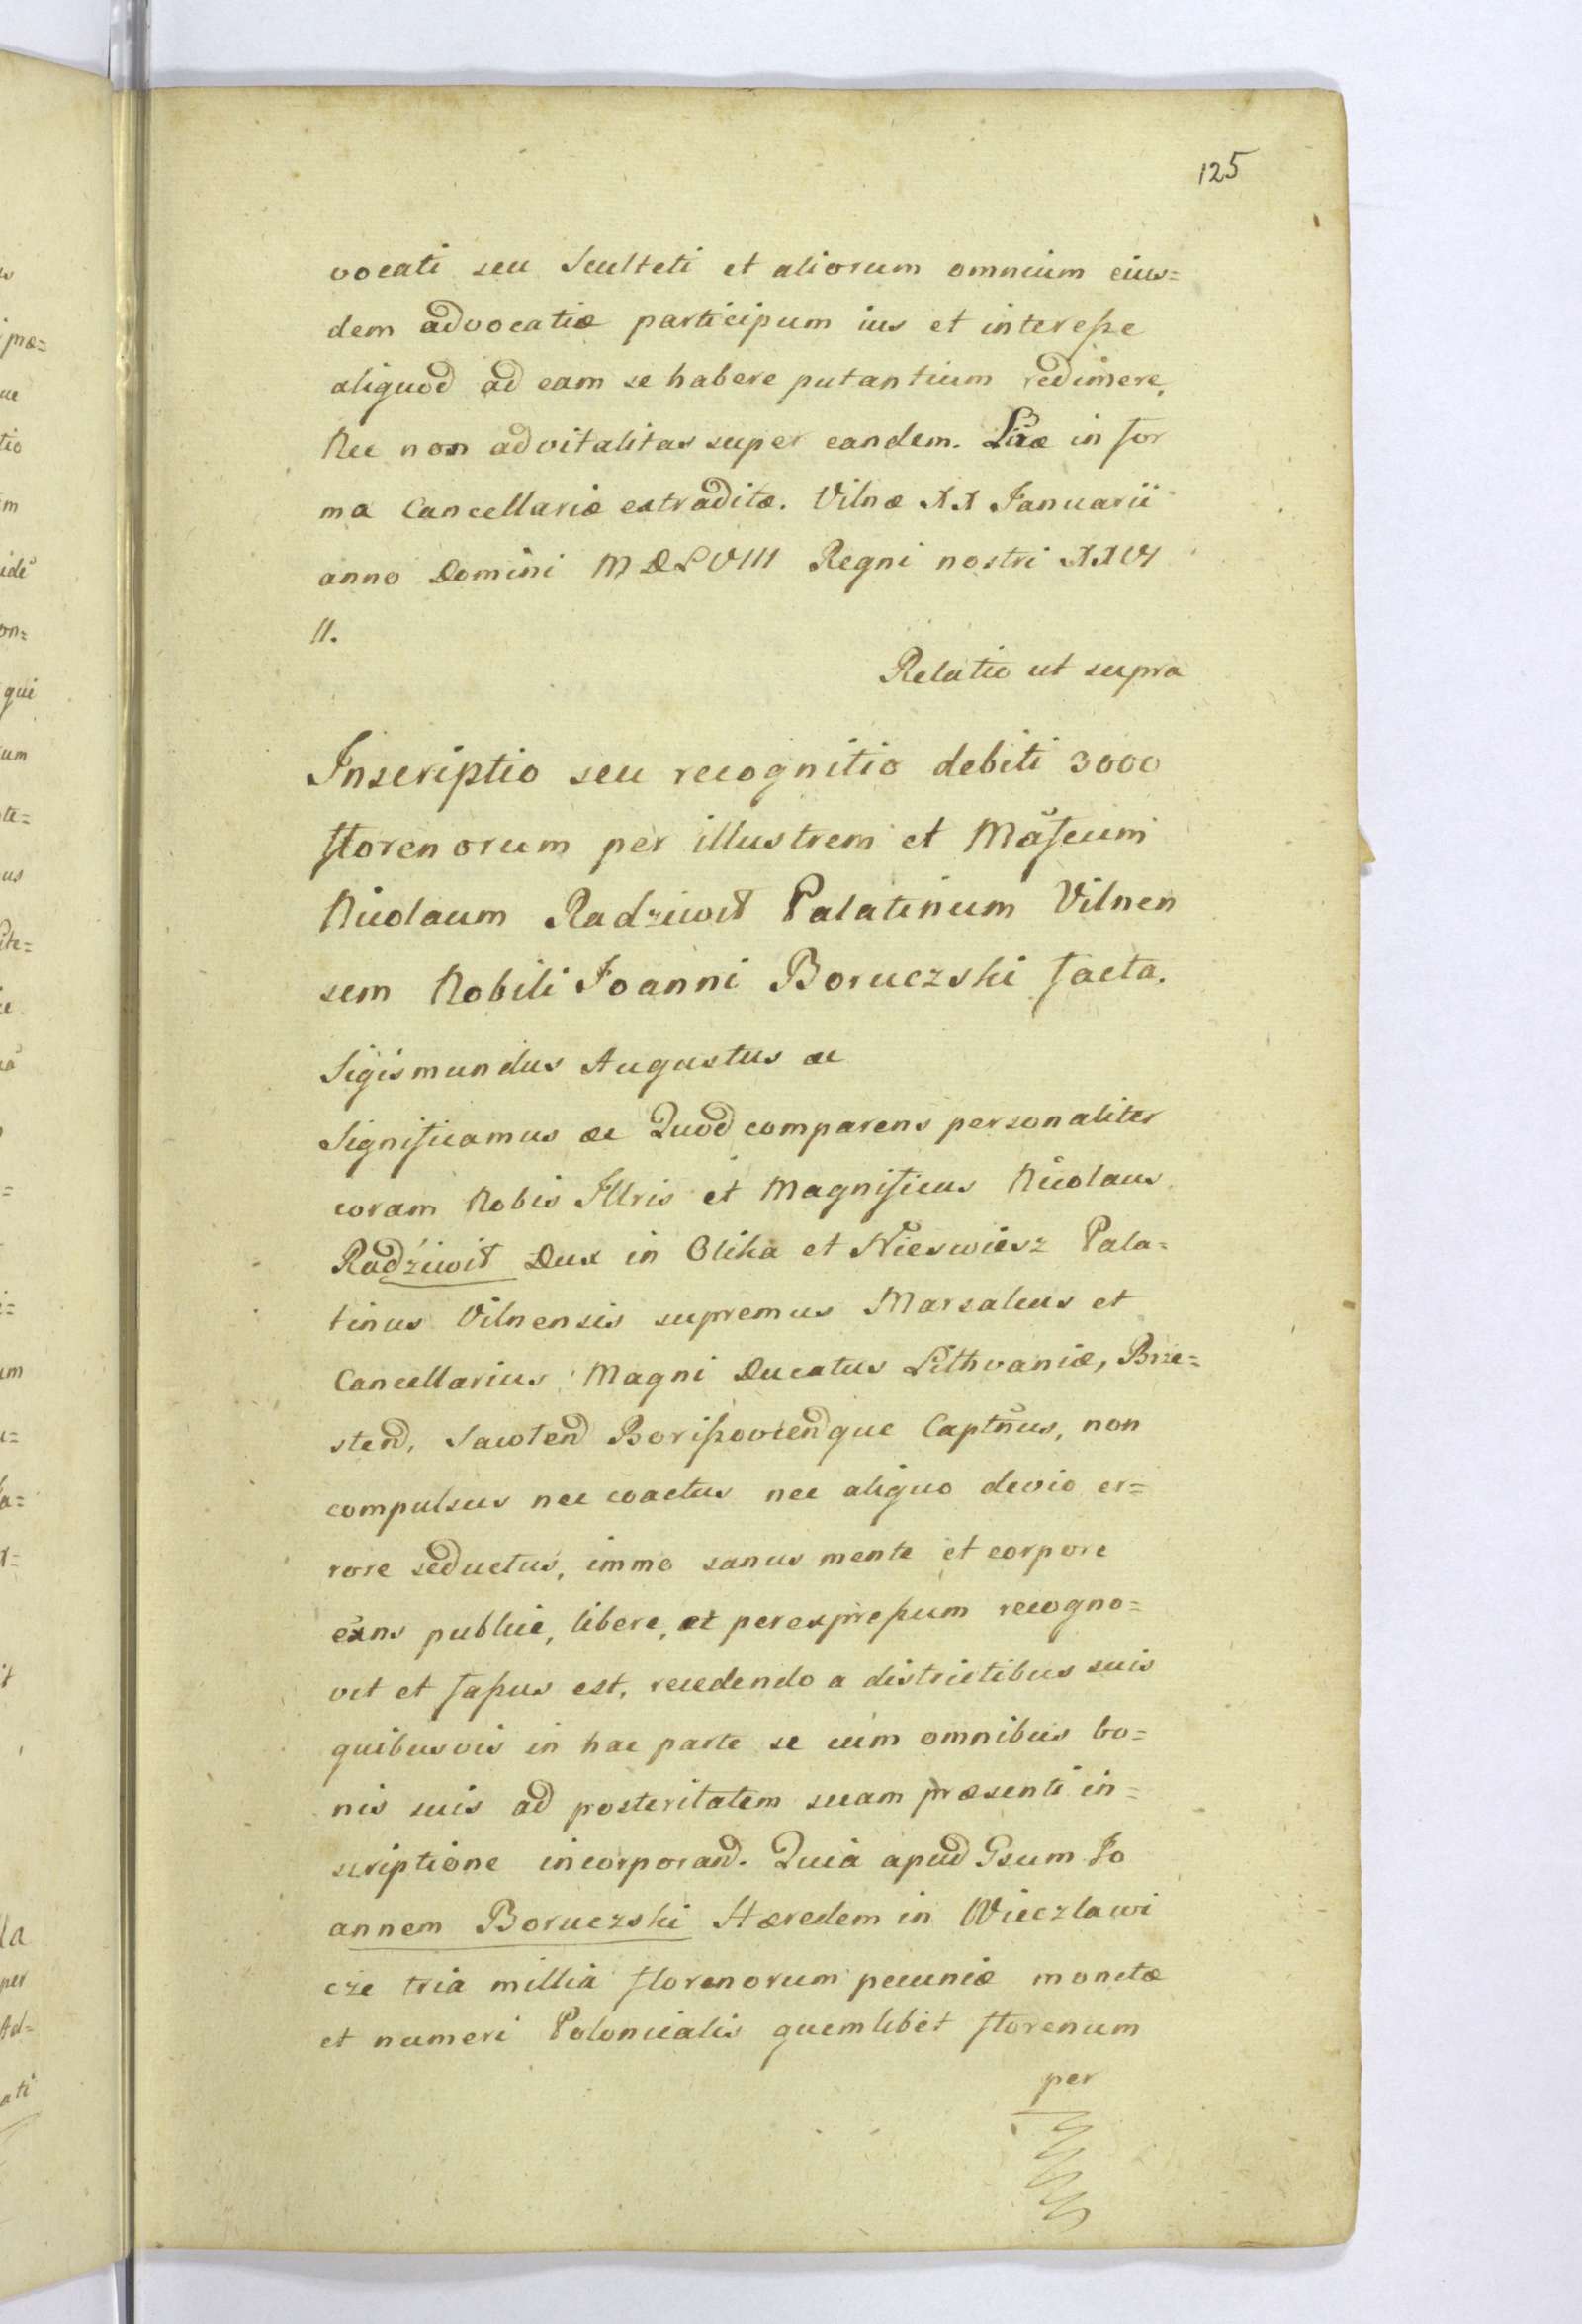 125
vocati seu Sculteti et aliorum omnium eius=
dem advocatiæ participum ius et interesse
aliquod ad eam se habere putantium redimere,
Nec non advitalitas super eandem. Lræ in for
ma Cancellariæ extraditæ. Vilnæ XX Januarii
anno Domini MDLVIII Regni nostri XXVI
II.
Relatio ut supra
Inscriptio seu recognitio debiti 3000
florenorum per illustrem et Mãficum
Nicolaum Radziwił Palatinum Vilnen
sem Nobili Joanni Boruczski facta.
Sigismundus Augustus ac
Significamus ac Quod comparens personaliter
coram Nobis Illris et Magnificus Nicolaus
Radziwił Dux in Olika et Nieswiesz Pala=
tinus Vilnensis supremus Marsalcus et
Cancellarius Magni Ducatus Lithvaniæ, Brze=
stend, Sawlend Borissoviendque Captñus, non
compulsus nec coactus nec aliquo devio er=
rore seductus, immo sanus mente et corpore
exns publice, libere, et per expressum recogno=
vit et fassus est, recedendo a districtibus suis
quibusvis in hac parte se cum omnibus bo=
nis suis ad posteritatem suam præsenti in=
scriptione incorporand. Quia apud Gsum Jo
annem Boruczski Hæredem in Wieczlawi
cze tria millia florenorum pecuniæ monetæ
et numeri Polonicalis quemlibet florenum
per